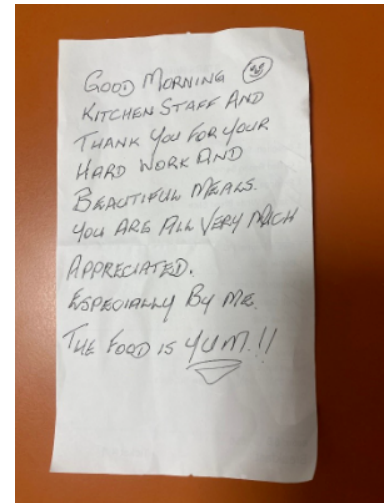 GOOD MORNING
KITCHEN STAFF AND
THANK YOU FOR YOUR
HARD WORK AND
BEAUTIFUL MEALS.
YOU ARE ALL VERY MUCH
APPRECIATED.
ESPECIALLY BY ME.
THE FOOD IS YUM!!